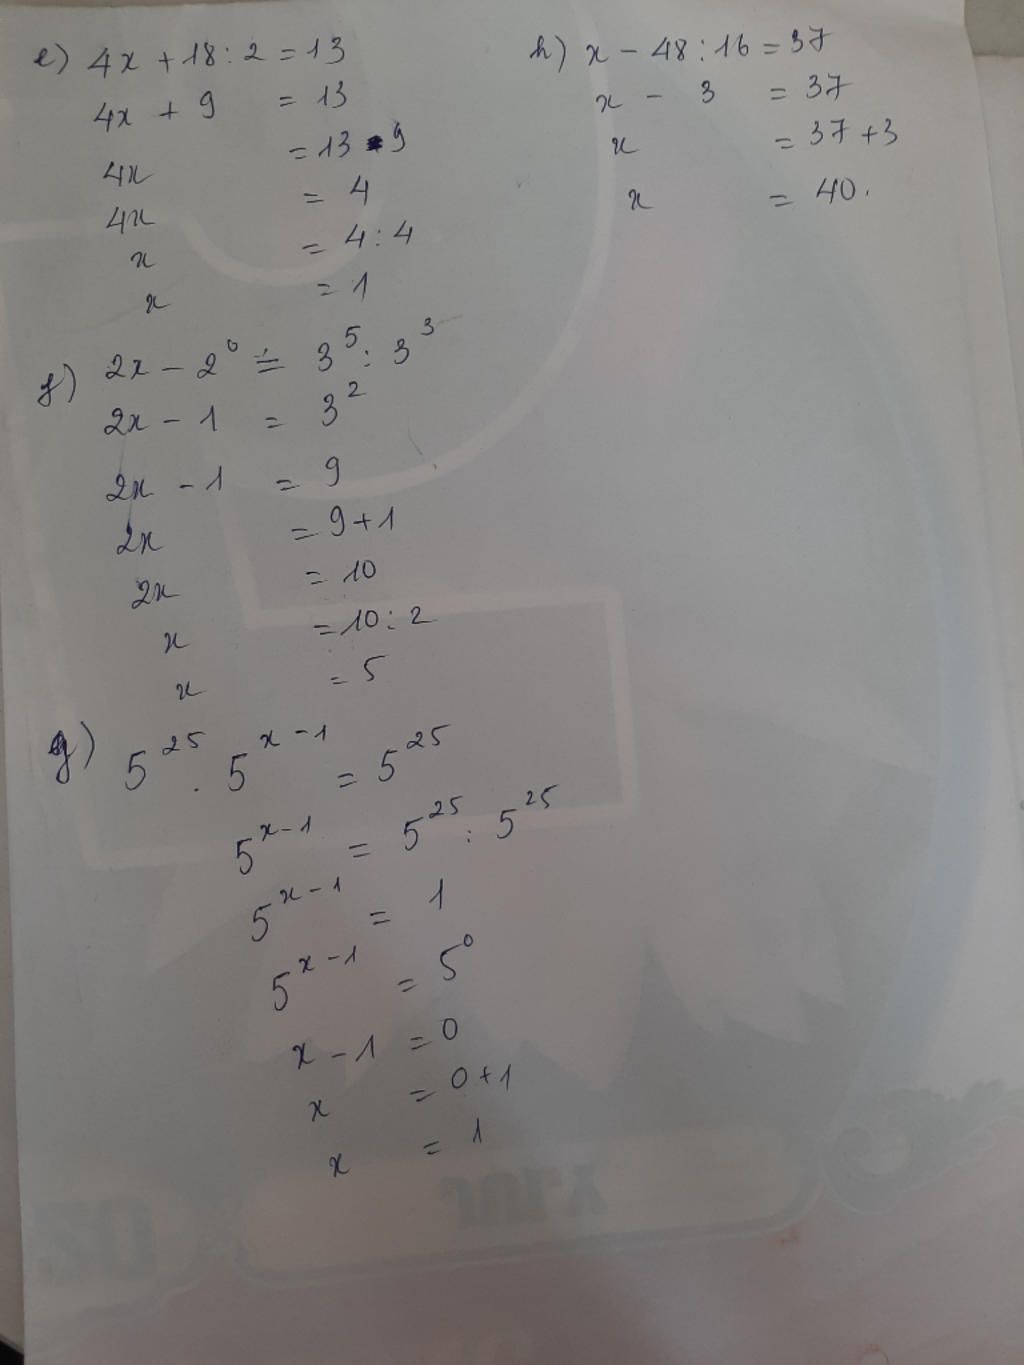 e) 4x + 18 : 2 = 13
4x + 9 = 13
4x = 13 - 9
4x = 4
x = 4 : 4
x = 1
f) 2x - 2⁰ = 3⁵ : 3³
2x - 1 = 3²
2x - 1 = 9
2x = 9 + 1
2x = 10
x = 10 : 2
x = 5
g) 5²⁵ . 5ˣ⁻¹ = 5²⁵
5ˣ⁻¹ = 5²⁵ : 5²⁵
5ˣ⁻¹ = 1
5ˣ⁻¹ = 5⁰
x - 1 = 0
x = 0 + 1
x = 1
h) x - 48 : 16 = 37
x - 3 = 37
x = 37 + 3
x = 40.